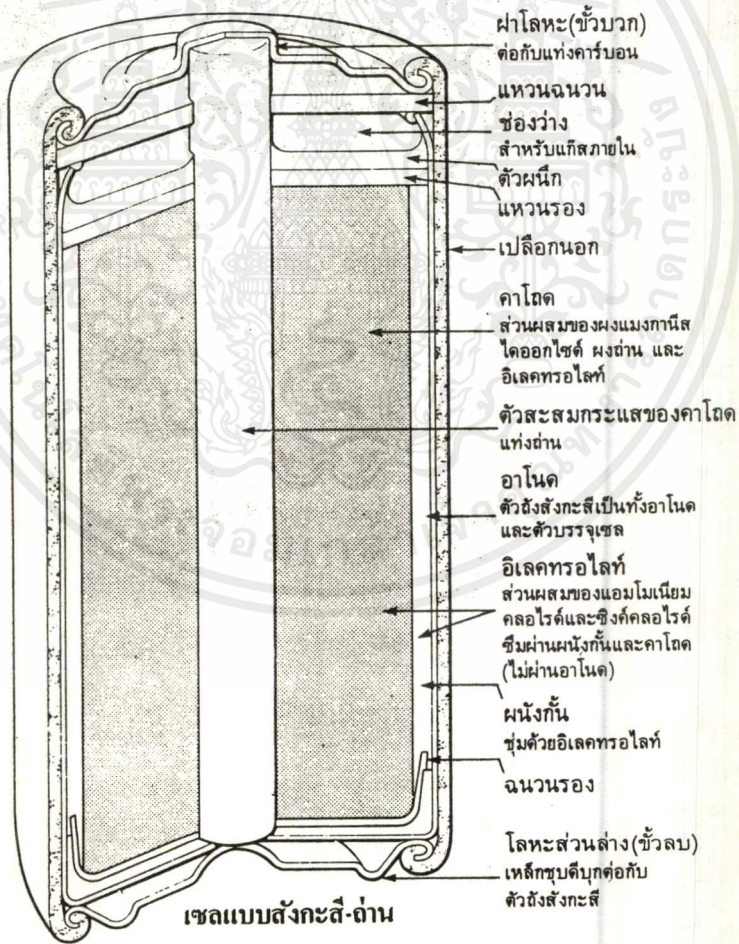 ฝาโลหะ(ขั้วบวก)
ต่อกับแท่งคาร์บอน
แหวนฉนวน
ช่องว่าง
สำหรับแก๊สภายใน
ตัวผนึก
แหวนรอง
เปลือกนอก
คาโถด
ส่วนผสมของผงแมงกานีส
ไดออกไซด์ ผงถ่าน และ
อิเลคทรอไลท์
ตัวสะสมกระแสของคาโถด
แท่งถ่าน
อาโนด
ตัวถังสังกะสีเป็นทั้งอาโนด
และตัวบรรจุเซล
อิเลคทรอไลท์
ส่วนผสมของแอมโมเนียม
คลอไรด์และซิงค์คลอไรด์
ซึมผ่านผนังกั้นและคาโถด
(ไม่ผ่านอาโนด)
ผนังกั้น
ชุ่มด้วยอิเลคทรอไลท์
ฉนวนรอง
โลหะส่วนล่าง(ขั้วลบ)
เหล็กชุบดีบุกต่อกับ
ตัวถังสังกะสี
เซลแบบสังกะสี-ถ่าน